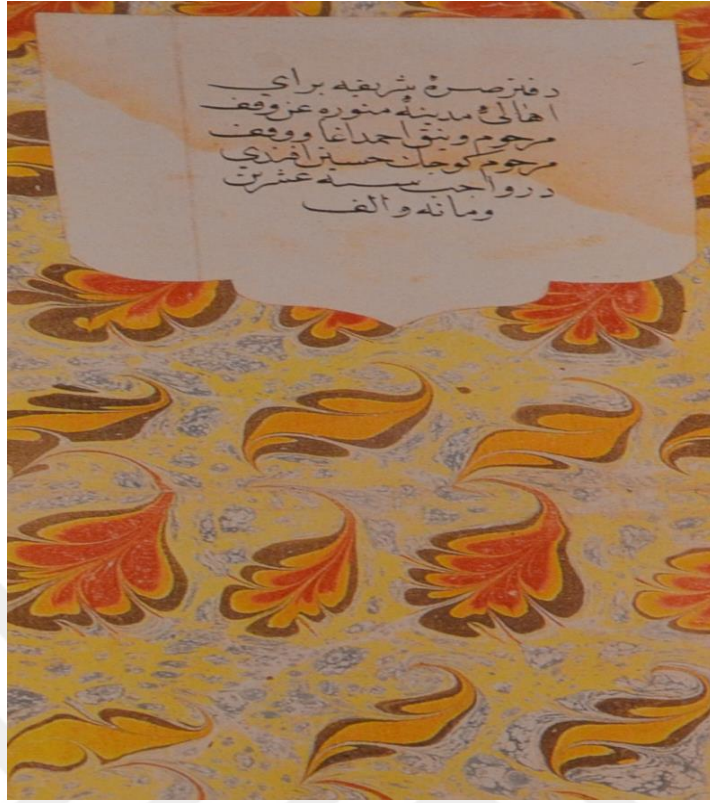 دفتر صرهٔ شریفه برای
اهالیٔ مدینهٔ منوره عن وقف
مرحوم وینق احمد اغا و وقف
مرحوم کوجك حسین افندی
در واجب سنه عشرین
ومائه والف